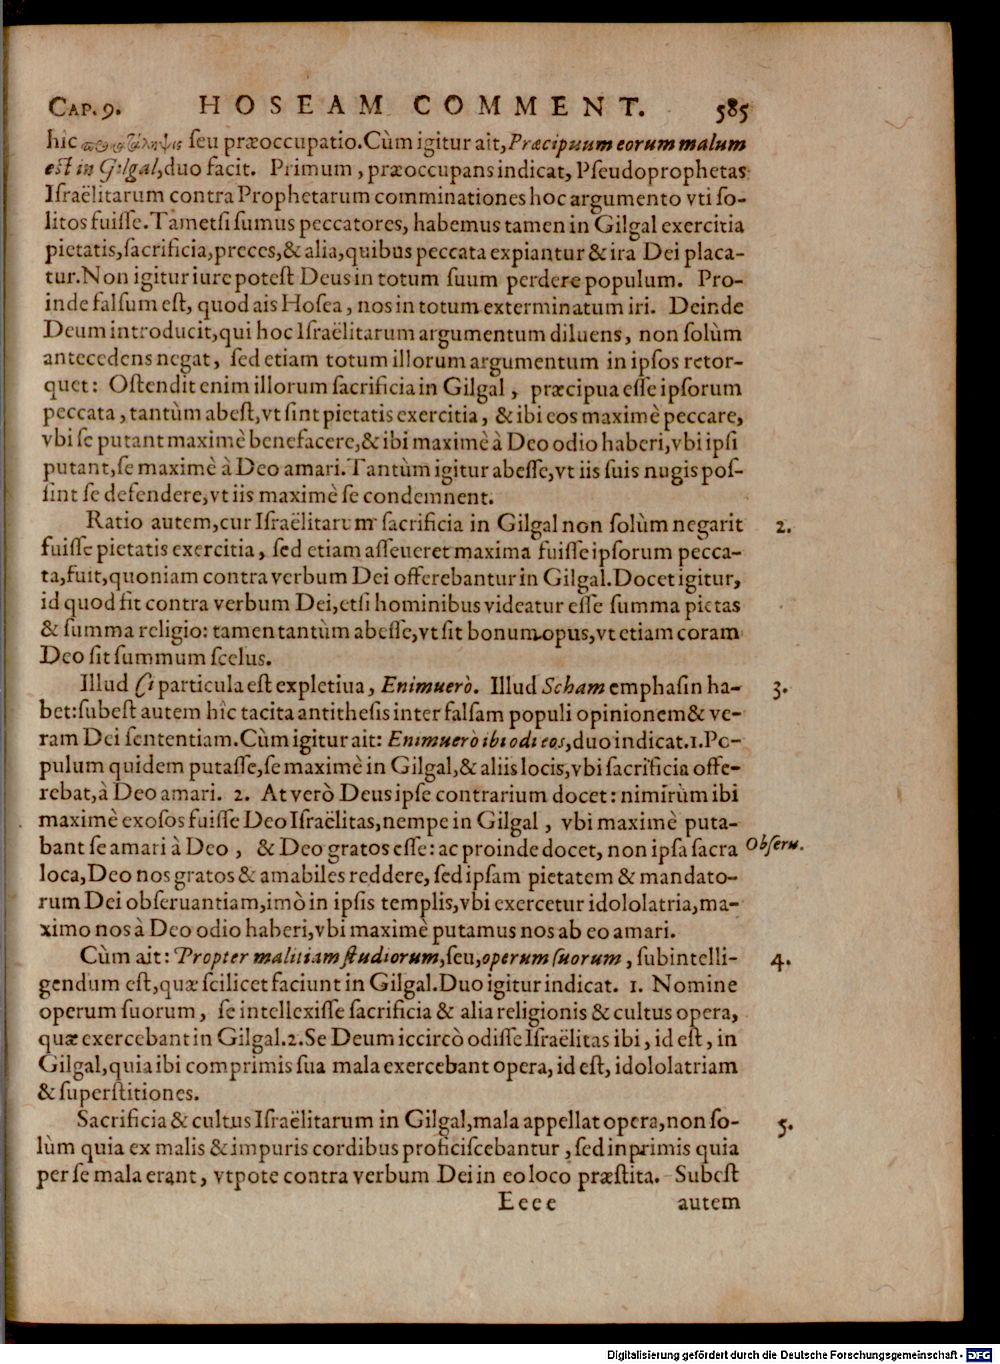 CAP. 9. HOSEAM COMMENT. 585
hic προκατάληψις ſeu præoccupatio. Cùm igitur ait, Præcipuum eorum malum
eſt in Gilgal, duo facit. Primum, præoccupans indicat, Pſeudoprophetas
Iſraëlitarum contra Prophetarum comminationes hoc argumento vti ſo-
litos fuiſſe. Tametſi ſumus peccatores, habemus tamen in Gilgal exercitia
pietatis, ſacrificia, preces, & alia, quibus peccata expiantur & ira Dei placa-
tur. Non igitur iure poteſt Deus in totum ſuum perdere populum. Pro-
inde falſum eſt, quod ais Hoſea, nos in totum exterminatum iri. Deinde
Deum introducit, qui hoc Iſraëlitarum argumentum diluens, non ſolùm
antecedens negat, ſed etiam totum illorum argumentum in ipſos retor-
quet: Oſtendit enim illorum ſacrificia in Gilgal, præcipua eſſe ipſorum
peccata, tantùm abeſt, vt ſint pietatis exercitia, & ibi eos maximè peccare,
vbi ſe putant maximè benefacere, & ibi maximè à Deo odio haberi, vbi ipſi
putant, ſe maximè à Deo amari. Tantùm igitur abeſſe, vt iis ſuis nugis poſ-
ſint ſe defendere, vt iis maximè ſe condemnent.
Ratio autem, cur Iſraëlitarum ſacrificia in Gilgal non ſolùm negarit 2.
fuiſſe pietatis exercitia, ſed etiam aſſeueret maxima fuiſſe ipſorum pecca-
ta, fuit, quoniam contra verbum Dei offerebantur in Gilgal. Docet igitur,
id quod fit contra verbum Dei, etſi hominibus videatur eſſe ſumma pietas
& ſumma religio: tamen tantùm abeſſe, vt ſit bonum opus, vt etiam coram
Deo ſit ſummum ſcelus.
Illud Ci particula eſt expletiua, Enimuerò. Illud Scham emphaſin ha- 3.
bet: ſubeſt autem hîc tacita antitheſis inter falſam populi opinionem & ve-
ram Dei ſententiam. Cùm igitur ait: Enimuerò ibi odi eos, duo indicat. 1. Po-
pulum quidem putaſſe, ſe maximè in Gilgal, & aliis locis, vbi ſacrificia offe-
rebat, à Deo amari. 2. At verò Deus ipſe contrarium docet: nimirùm ibi
maximè exoſos fuiſſe Deo Iſraëlitas, nempe in Gilgal, vbi maximè puta-
bant ſe amari à Deo, & Deo gratos eſſe: ac proinde docet, non ipſa ſacra Obſeru.
loca, Deo nos gratos & amabiles reddere, ſed ipſam pietatem & mandato-
rum Dei obſeruantiam, imò in ipſis templis, vbi exercetur idololatria, ma-
ximo nos à Deo odio haberi, vbi maximè putamus nos ab eo amari.
Cùm ait: Propter malitiam ſtudiorum, ſeu, operum ſuorum, ſubintelli- 4.
gendum eſt, quæ ſcilicet faciunt in Gilgal. Duo igitur indicat. 1. Nomine
operum ſuorum, ſe intellexiſſe ſacrificia & alia religionis & cultus opera,
quæ exercebant in Gilgal. 2. Se Deum iccircò odiſſe Iſraëlitas ibi, id eſt, in
Gilgal, quia ibi comprimis ſua mala exercebant opera, id eſt, idololatriam
& ſuperſtitiones.
Sacrificia & cultus Iſraëlitarum in Gilgal, mala appellat opera, non ſo- 5.
lùm quia ex malis & impuris cordibus proficiſcebantur, ſed inprimis quia
per ſe mala erant, vtpote contra verbum Dei in eo loco præſtita. Subeſt
Eeee autem
Digitalisierung gefördert durch die Deutsche Forschungsgemeinschaft - DFG